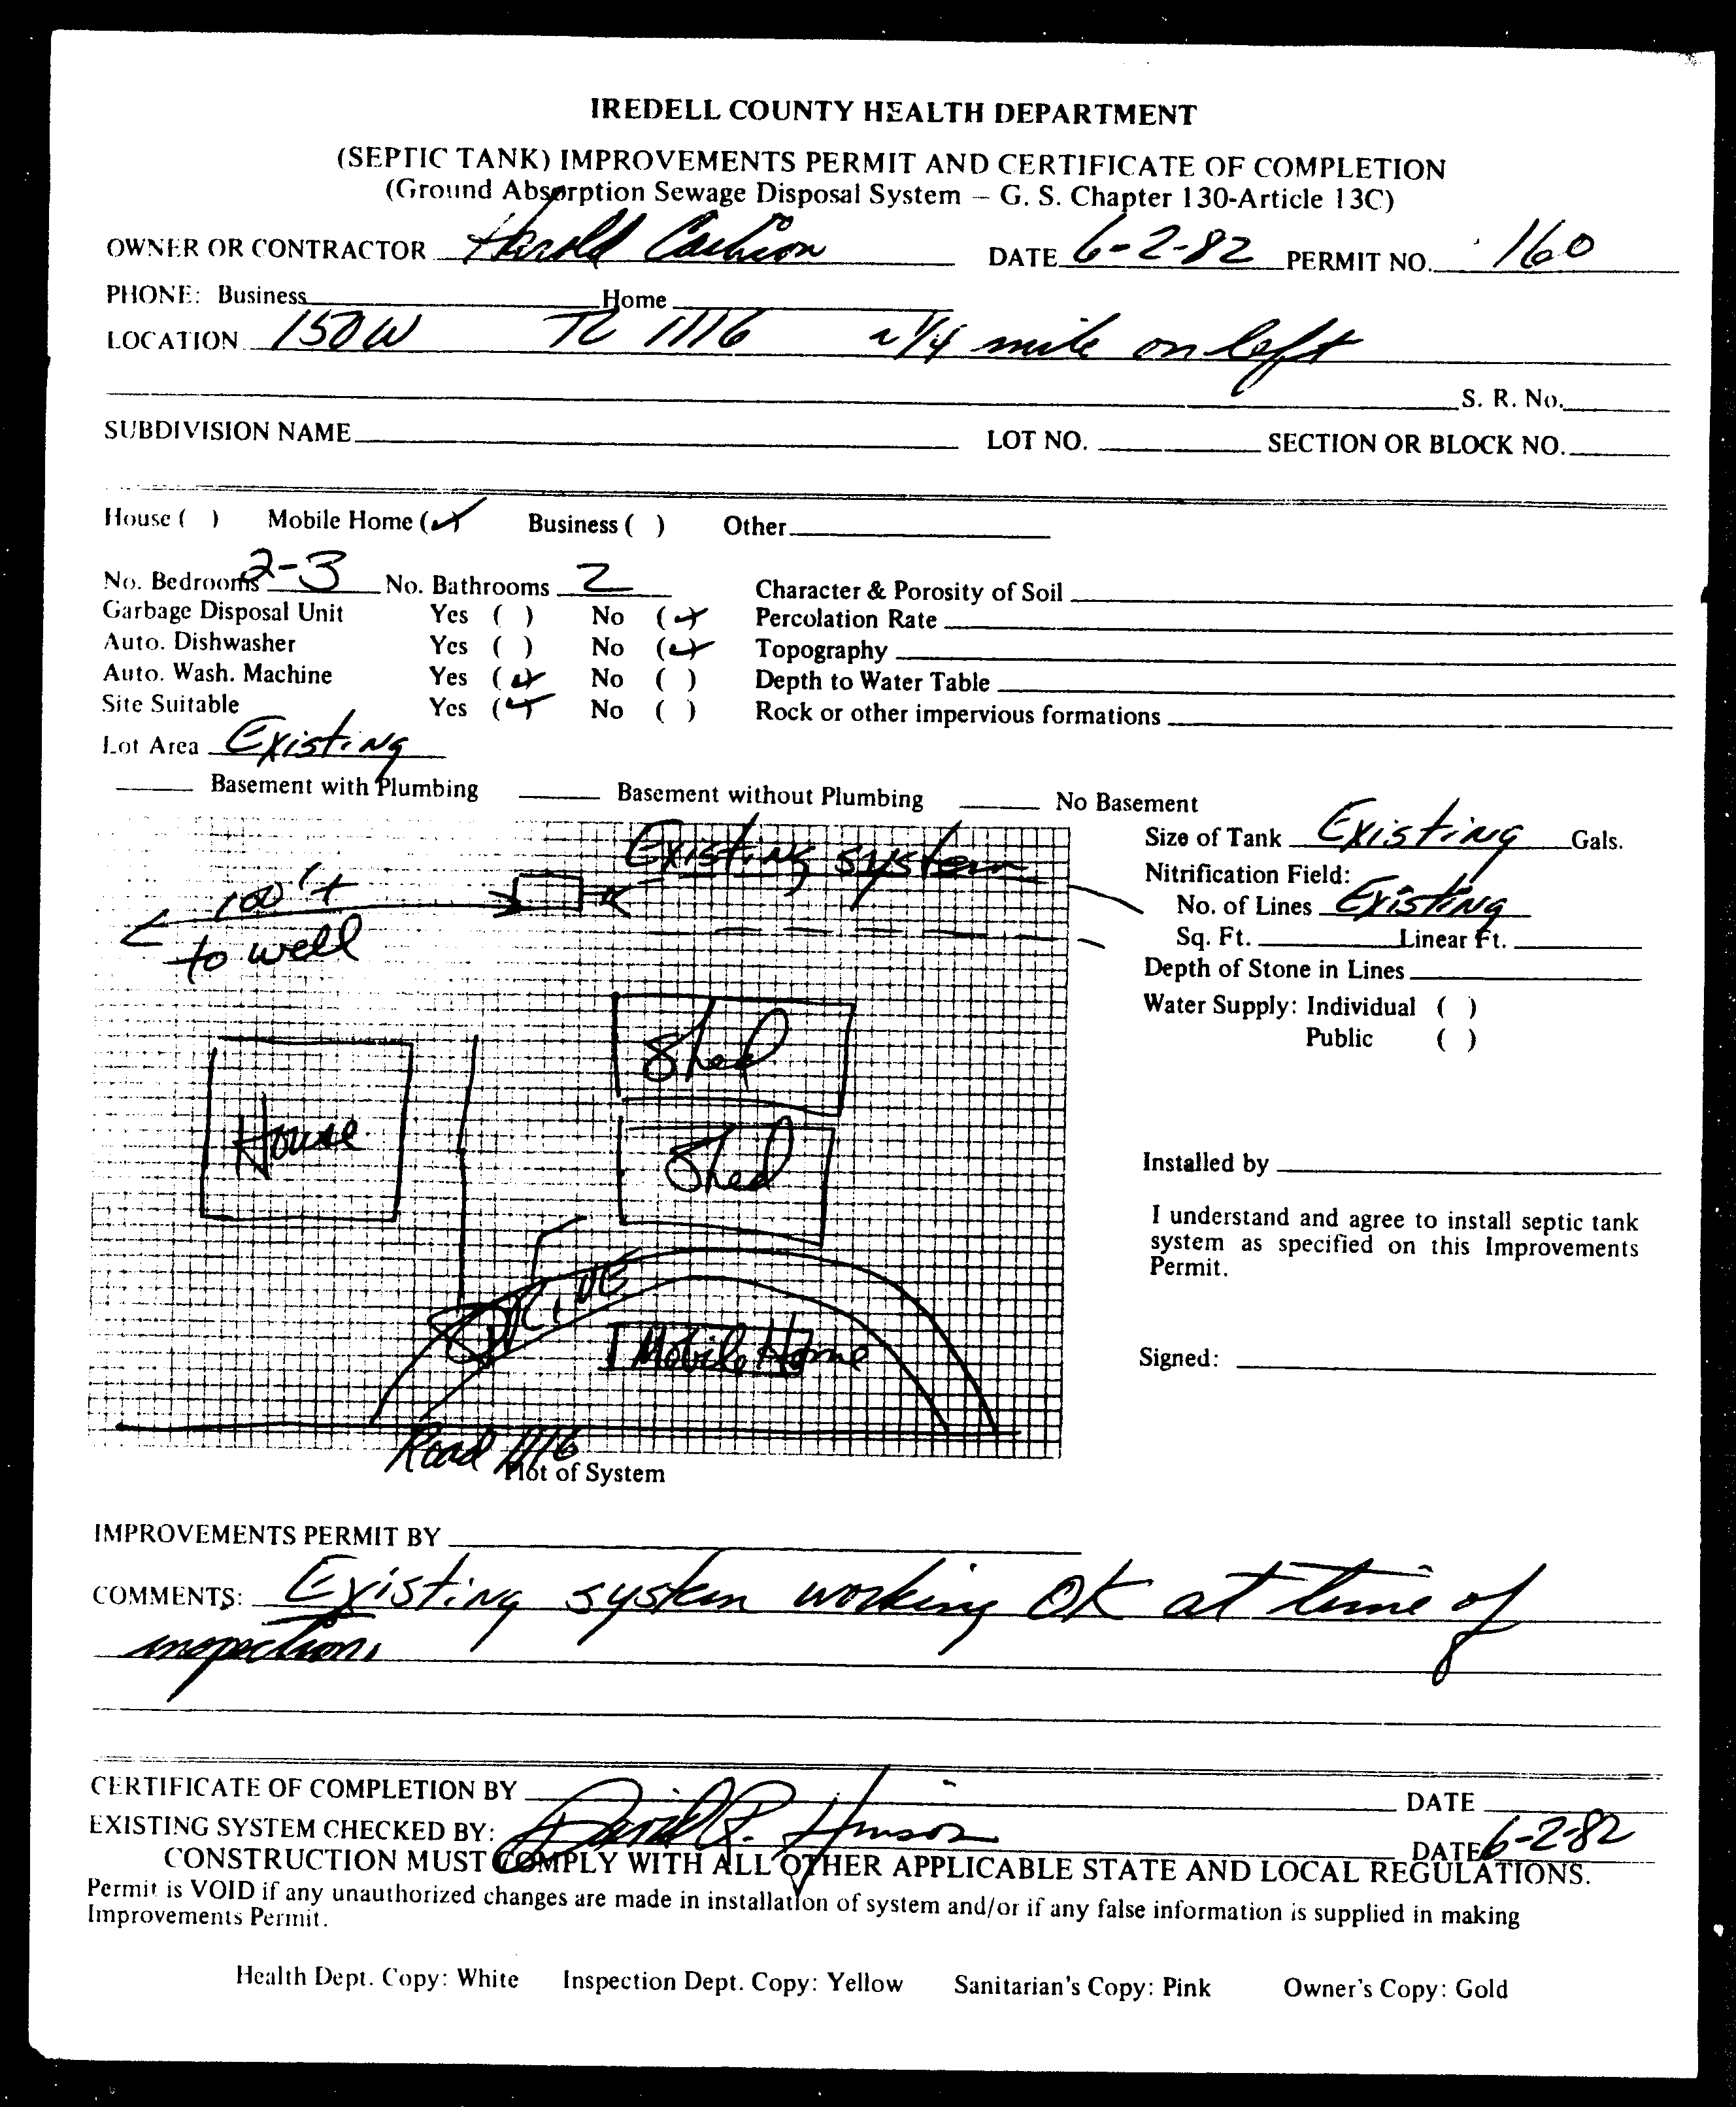 IREDELL COUNTY HEALTH DEPARTMENT
(SEPTIC TANK) IMPROVEMENTS PERMIT AND CERTIFICATE OF COMPLETION
(Ground Absorption Sewage Disposal System — G. S. Chapter 130-Article 13C)
OWNER OR CONTRACTOR Harold Cashion DATE 6-2-82 PERMIT NO. 160
PHONE: Business Home
LOCATION 150W TL 1116 ~ 1/4 mile on left
S. R. No.
SUBDIVISION NAME LOT NO. SECTION OR BLOCK NO.
House ( ) Mobile Home (✓) Business ( ) Other
No. Bedrooms 2-3 No. Bathrooms 2 Character & Porosity of Soil
Garbage Disposal Unit Yes ( ) No (✓) Percolation Rate
Auto. Dishwasher Yes ( ) No (✓) Topography
Auto. Wash. Machine Yes (✓) No ( ) Depth to Water Table
Site Suitable Yes (✓) No ( ) Rock or other impervious formations
Lot Area Existing
Basement with Plumbing Basement without Plumbing No Basement
Existing system
100'+
to well
Shed
House
Shed
Drive
Mobile Home
Road 1116
Plot of System
Size of Tank Existing Gals.
Nitrification Field:
No. of Lines Existing
Sq. Ft. Linear Ft.
Depth of Stone in Lines
Water Supply: Individual ( )
Public ( )
Installed by
I understand and agree to install septic tank
system as specified on this Improvements
Permit.
Signed:
IMPROVEMENTS PERMIT BY
COMMENTS: Existing system working OK at time of
inspection.
CERTIFICATE OF COMPLETION BY DATE
EXISTING SYSTEM CHECKED BY: David R. Hinson DATE 6-2-82
CONSTRUCTION MUST COMPLY WITH ALL OTHER APPLICABLE STATE AND LOCAL REGULATIONS.
Permit is VOID if any unauthorized changes are made in installation of system and/or if any false information is supplied in making
Improvements Permit.
Health Dept. Copy: White Inspection Dept. Copy: Yellow Sanitarian's Copy: Pink Owner's Copy: Gold